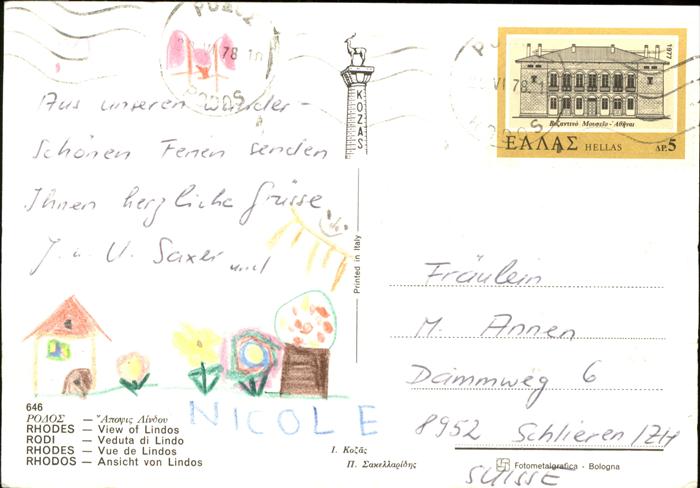 ΡΟΔΟΣ
VI 78
ΡΟΔΟΣ
VI 78
1977
Βυζαντινό Μουσείο - Ἀθῆναι
ΕΛΛΑΣ HELLAS ΔΡ. 5
KOZAS
Aus unseren wunder-
schönen Ferien senden
Ihnen herzliche Grüsse
J. u. U. Saxer und
NICOLE
Printed in Italy
Fräulein
M. Annen
Dammweg 6
8952 Schlieren/ZH
SUISSE
646
ΡΟΔΟΣ — Ἄποψις Λίνδου
RHODES — View of Lindos
RODI — Veduta di Lindo
RHODES — Vue de Lindos
RHODOS — Ansicht von Lindos
Ι. Κοζᾶς
Π. Σακελλαρίδης
Fotometalgrafica - Bologna